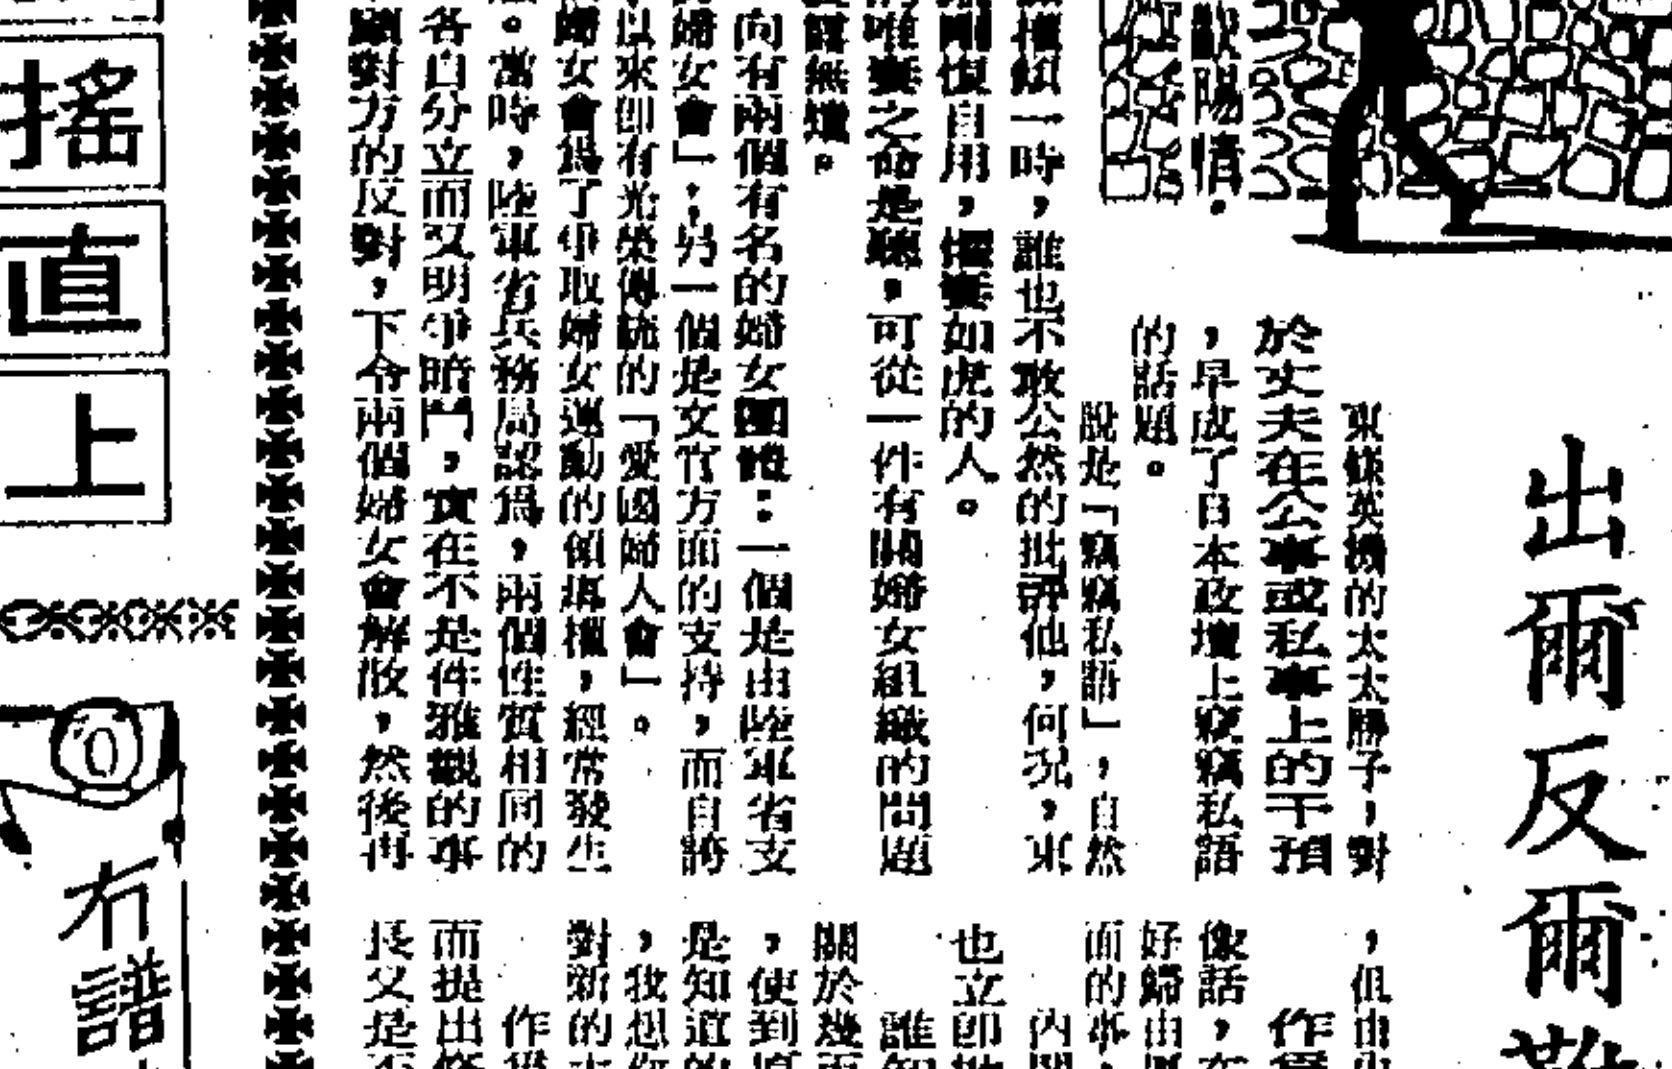 出爾反爾難
歐陽情。
東條英機的太太勝子，對
於丈夫在公事或私事上的干預
，早成了日本政壇上竊竊私語
的話題。
說是「竊竊私語」，自然
權傾一時，誰也不敢公然的批評他，何況，東
剛愎自用，懼妻如虎的人。
唯妻之命是聽，可從一件有關婦女組織的問題
無遺。
向有兩個有名的婦女團體：一個是由陸軍省支
婦女會」，另一個是文官方面的支持，而自誇
以來卽有光榮傳統的「愛國婦人會」。
婦女會爲了爭取婦女運動的領導權，經常發生
。當時，陸軍省兵務局認爲，兩個性質相同的
各自分立而又明爭暗鬥，實在不是件雅觀的事
顧對方的反對，下令兩個婦女會解散，然後再
，但由
作爲
像話，在
好歸由
面的事，
內閣
也立卽
誰知
關於幾
，使到
是知道的
，我想你
對新的
作
而提出
長又是
搖
直
上
冇
譜